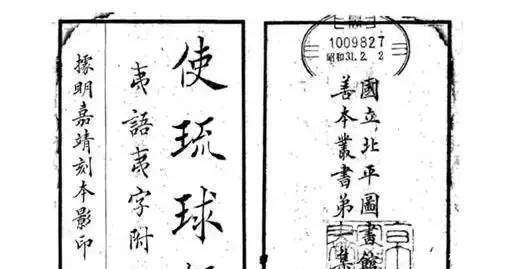 1009827
昭和31.2.2
國立北平圖書館
善本叢書弟集
使琉球
夷語夷字附
據明嘉靖刻本影印